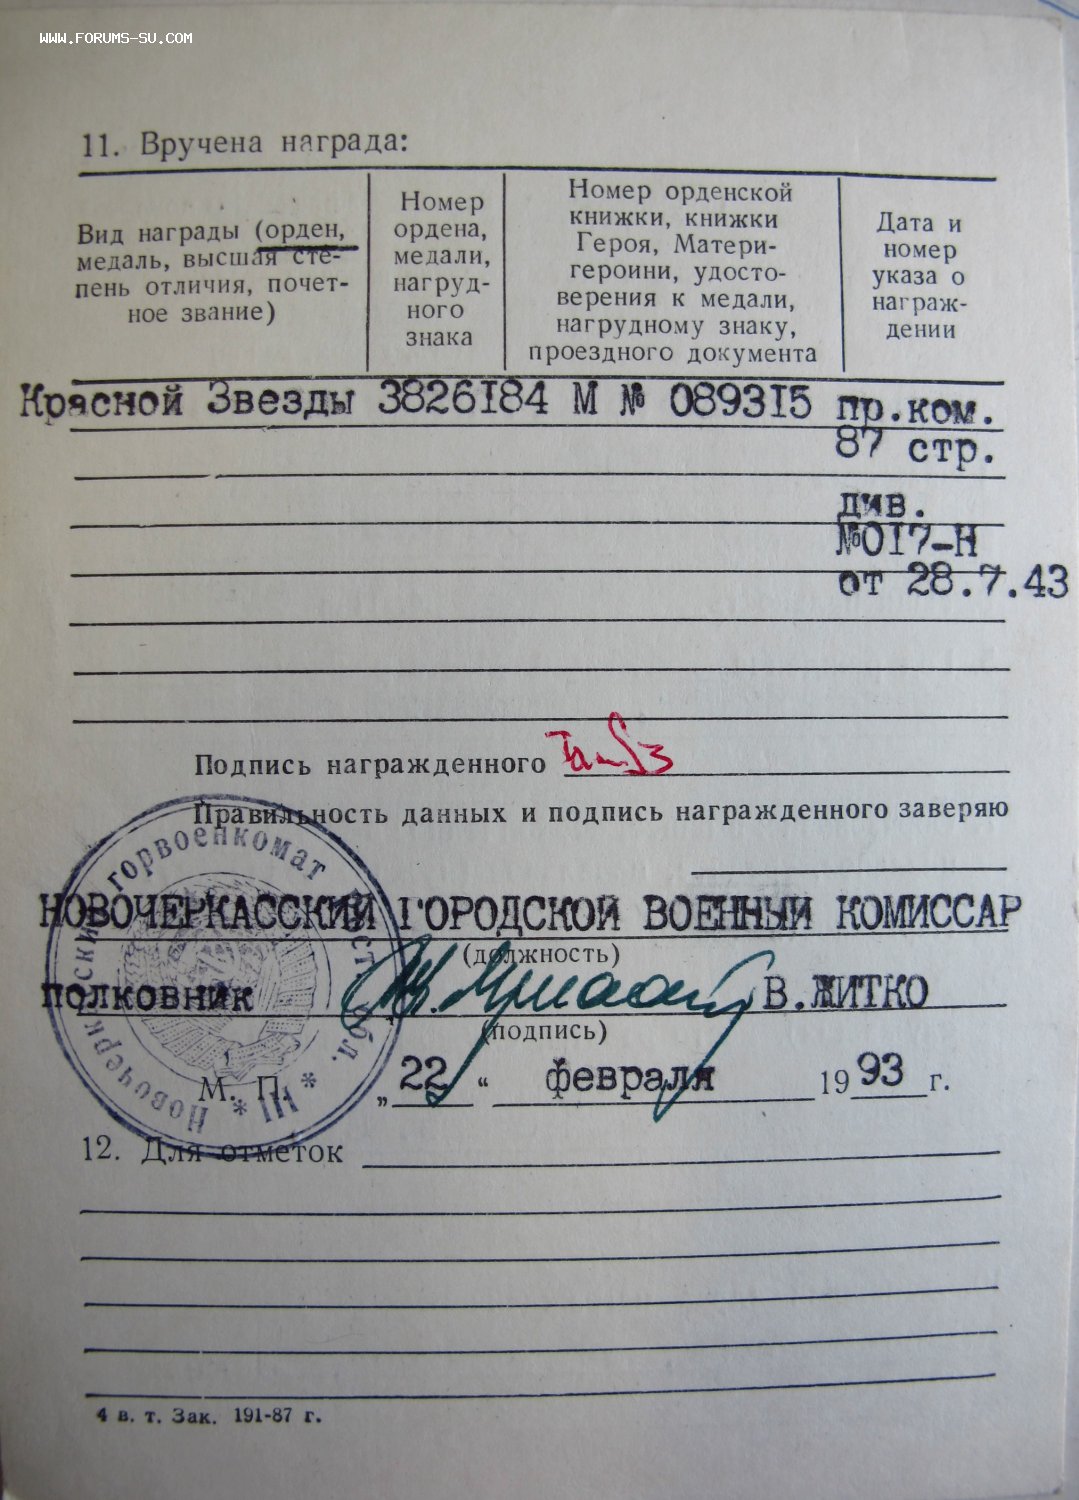 WWW.FORUMS-SU.COM
11. Вручена награда:
Вид награды (орден,
медаль, высшая сте-
пень отличия, почет-
ное звание)
Номер
ордена,
медали,
нагруд-
ного
знака
Номер орденской
книжки, книжки
Героя, Матери-
героини, удосто-
верения к медали,
нагрудному знаку,
проездного документа
Дата и
номер
указа о
награж-
дении
Красной Звезды 3826I84 М № 0893I5 пр.ком.
87 стр.
див.
№0I7-Н
от 28.7.43
Подпись награжденного
Правильность данных и подпись награжденного заверяю
НОВОЧЕРКАССКИЙ ГОРОДСКОЙ ВОЕННЫЙ КОМИССАР
(должность)
полковник В.ЖИТКО
(подпись)
М. П. „ 22 “ февраля 19 93 г.
Новочеркасский горвоенкомат Рост. обл. * III *
12. Для отметок
4 в. т. Зак. 191-87 г.